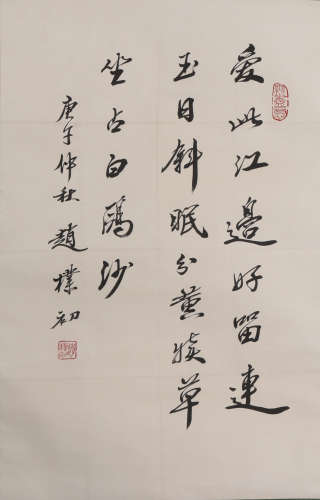 愛此江邊好留連
玉日斜眠分黄犢草
坐占白鷗沙
庚午仲秋趙樸初